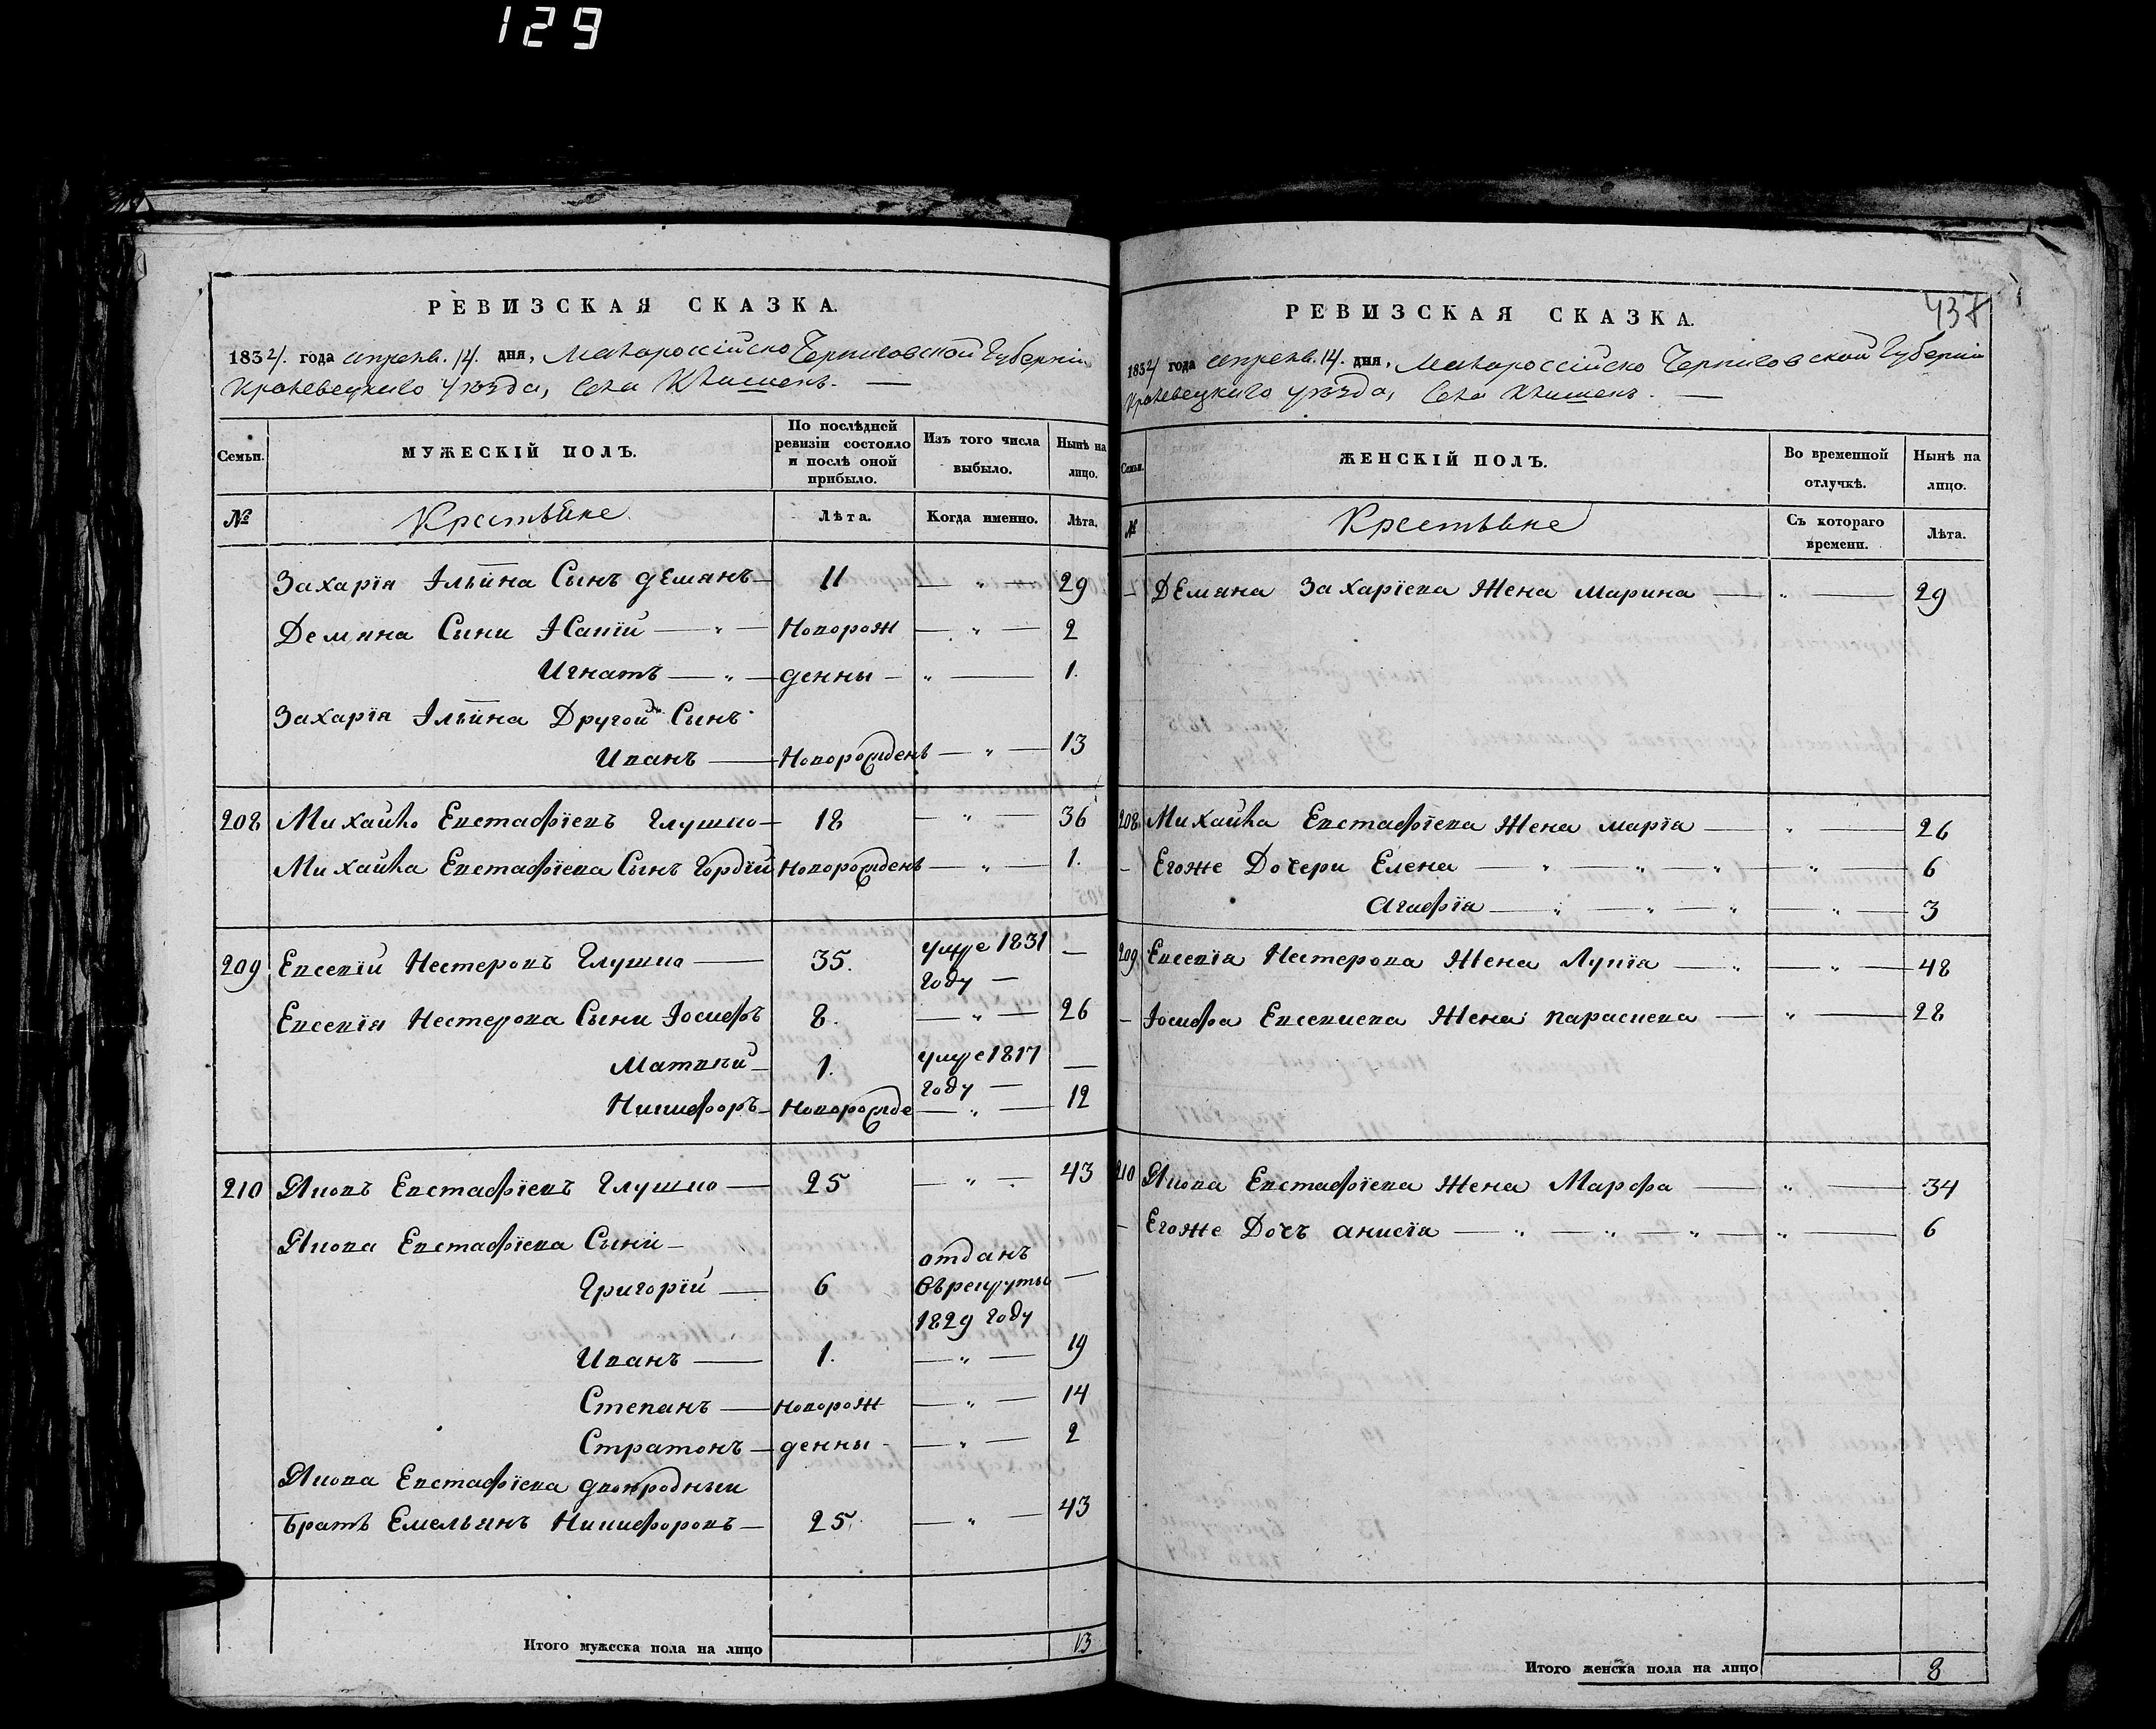 129
РЕВИЗСКАЯ СКАЗКА.
1834. года апрелѣ. 14. дня, Малороссійско Черниговской Губерніи
Кролевецкаго уѣзда, Села Клишекъ.
Семьи.
МУЖЕСКІЙ ПОЛЪ.
По послѣдней ревизіи состояло и послѣ оной прибыло.
Изъ того числа выбыло.
Нынѣ на лицо.
№
Крестьяне
Лѣта.
Когда именно.
Лѣта.
Захарія Ильина Сынъ Демянъ 11 — " — 29
Демяна Сыни Исаній — " — Новорож — " — 2
Игнатъ — " — денны — " — 1.
Захарія Ильина Другой Сынъ
Иванъ — Новорожденъ — " — 13
208 Михайло Евстафіевъ Глушко — 18 — " — 36
Михайла Евстафіева Сынъ Гордій Новорожденъ — " — 1.
209 Евсевій Нестеровъ Глушко — 35. умре 1831 —
году —
Евсевія Нестерова Сыни Іосифъ 8. — " — 26
Матвѣй — 1. умре 1817 —
году —
Никифоръ — Новорожде — " — 12
210 Яковъ Евстафіевъ Глушко — 25 — " — 43
Якова Евстафіева Сыни —
отданъ
Григорій — 6 въ рекруты —
1829 году
Иванъ — 1. — " — 19
Степанъ — новорож — " — 14
Стратонъ — денны — " — 2
Якова Евстафіева двоюродный
Братъ Емельянъ Никифоровъ — 25. — " — 43
Итого мужеска пола на лицо 13
437
РЕВИЗСКАЯ СКАЗКА.
1834 года апрелѣ. 14. дня, Малороссійско Черниговской Губерніи
Кролевецкаго уѣзда, Села Клишекъ.
Семьи.
ЖЕНСКІЙ ПОЛЪ.
Во временной отлучкѣ.
Нынѣ на лицо.
№
Крестьяне
Съ котораго времени.
Лѣта.
— Демяна Захаріева Жена Марина — " — 29
208 Михайла Евстафіева Жена Марія — " — 26
— Егоже Дочери Елена — " — " — " — " — 6
Агафія — " — " — " — " — 3
209 Евсевія Нестерова Жена Лукія — " — " — 48
— Іосифа Евсевиева Жена Параскева — " — 28
210 Якова Евстафіева Жена Марфа — " — 34
— Егоже Дочъ Анисія — " — " — " — " — 6
Итого женска пола на лицо 8